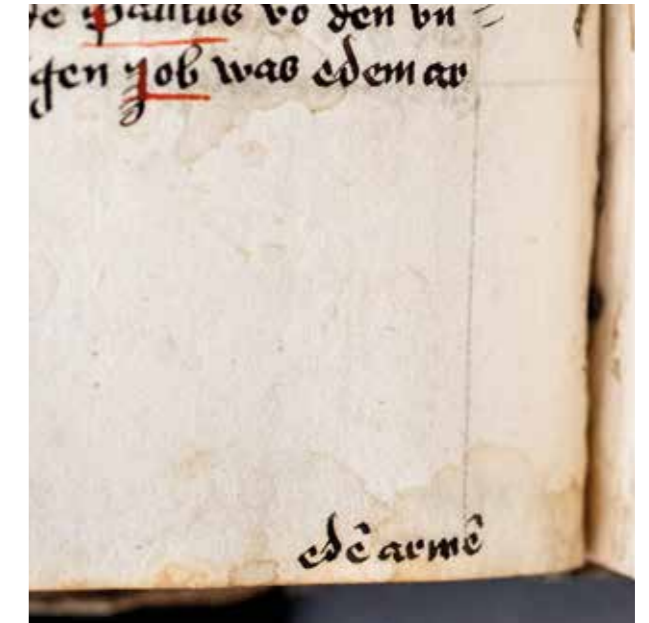 Paulus vo den vn
gen Job was edem ar
edē armē